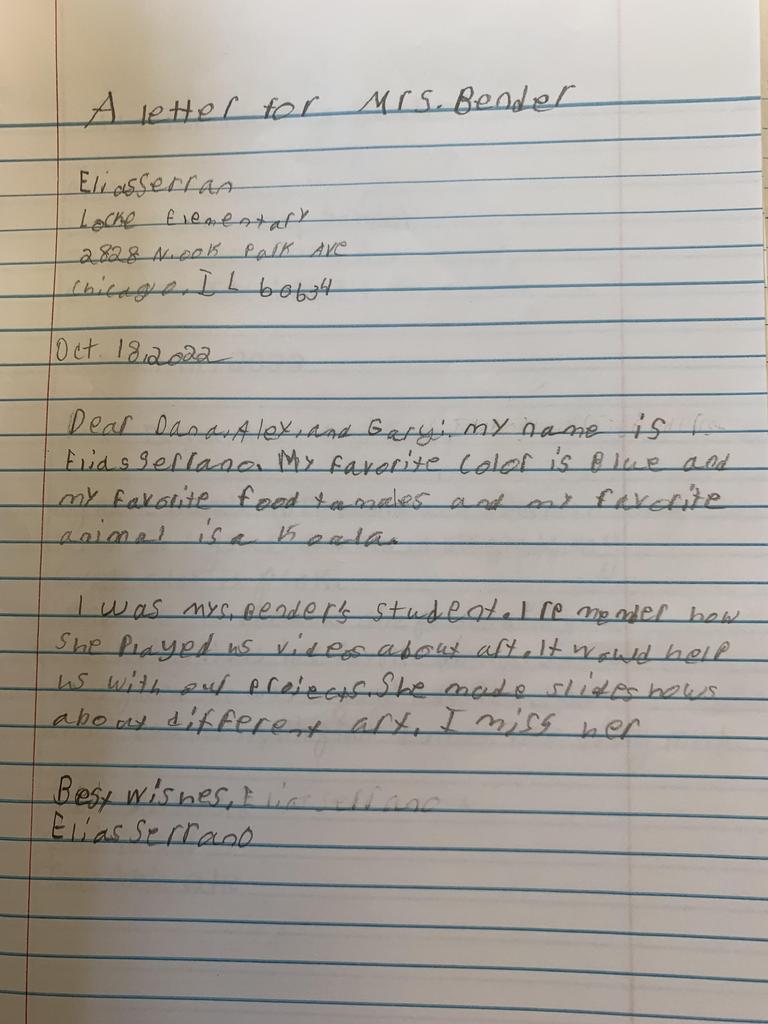 A letter for Mrs. Bender
Elias Serran
Locke Elementary
2828 N. Oak Park Ave
Chicago, IL 60634
Oct. 18, 2022
Dear Dana, Alex, and Gary: my name is
Elias Serrano. My favorite Color is Blue and
my favorite food tamales and my favorite
animal is a Koala.
I was mrs. Bender's student. I remember how
She Played us videos about art. It would help
us with our Projects. She made slideshows
about different art. I miss her
Best wishes, Elias Serrano
Elias Serrano